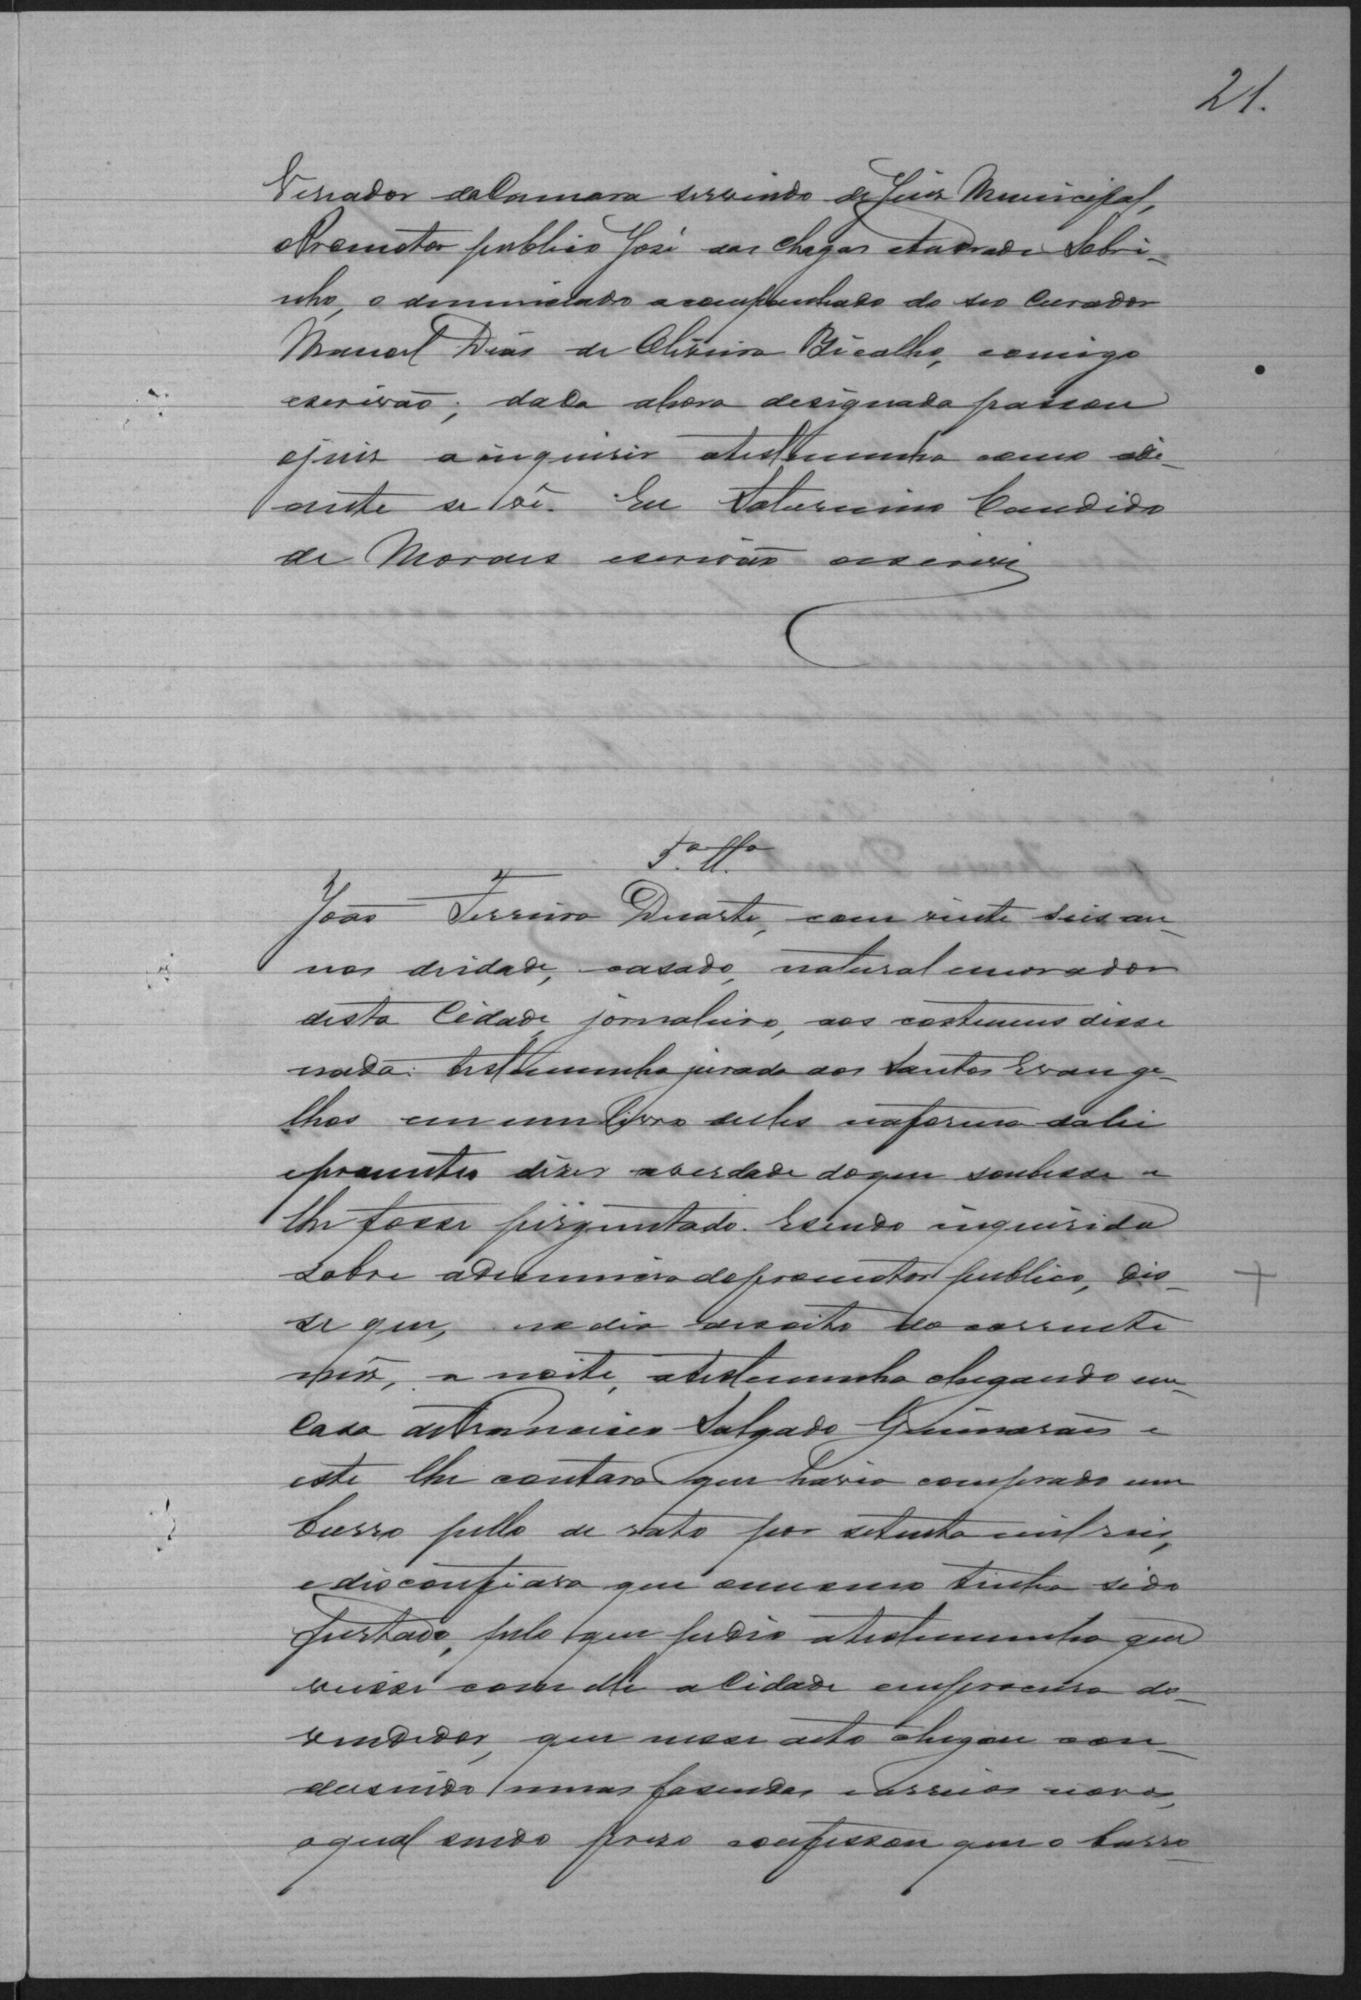 21.
Veriador da Camara servindo de Juiz Municipal,
o Promotor publico José das Chagas Andrade Sobri-
nho, o denunciado acompanhado do seo Curador
Manoel Dias de Oliveira Bicalho, comigo
escrivão; dada ahora designada passou
o juiz a inquirir atestemunha como adi-
ante se vê. Eu Saturnino Candido
de Moraes escrivão oescrevi
5.ª Tª
João Ferreira Duarte, com vinte seis an-
nos deidade, casado, natural emorador
desta Cidade, jornaleiro, aos costumes disse
nada: testemunha jurada aos Santos Evange-
lhos em um livro delles naforma dalei
eprometteo dizer averdade doque soubesse e
lhe fosse perguntado. Esendo inquirida
sobre adenuncia dopromotor publico, dis-
se que, nodia desoito do corrente
mês, a noite, atestemunha chegando em
Casa deFrancisco Salgado Guimarães e
este lhe contara que havia comprado um
burro pello de rato por setenta mil reis,
e disconfiara que omesmo tinha sido
furtado, pelo que pedio atestemunha que
viesse com elle a Cidade emprocura do
vendedor, que nesse acto chegou con-
dusindo umas fasendas earreios novos,
oqual sendo preso confessou que o burro